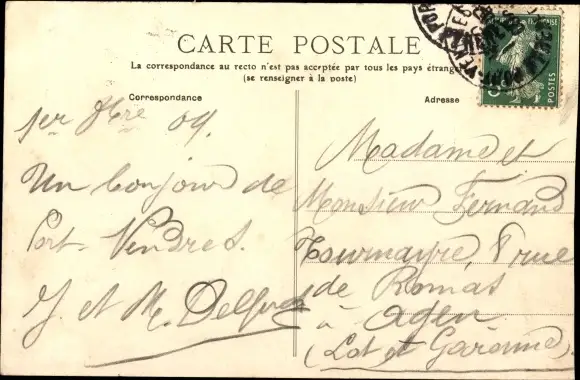 CARTE POSTALE
La correspondance au recto n'est pas acceptée par tous les pays étrangers
(se renseigner à la poste)
Correspondance
Adresse
1er 09.
Un bonjour de
Port-Vendres.
J. et M.
Madame et
Monsieur Fernand
Tourmayre, rue
de Romas
à Agen
(Lot et Garonne).
POSTES